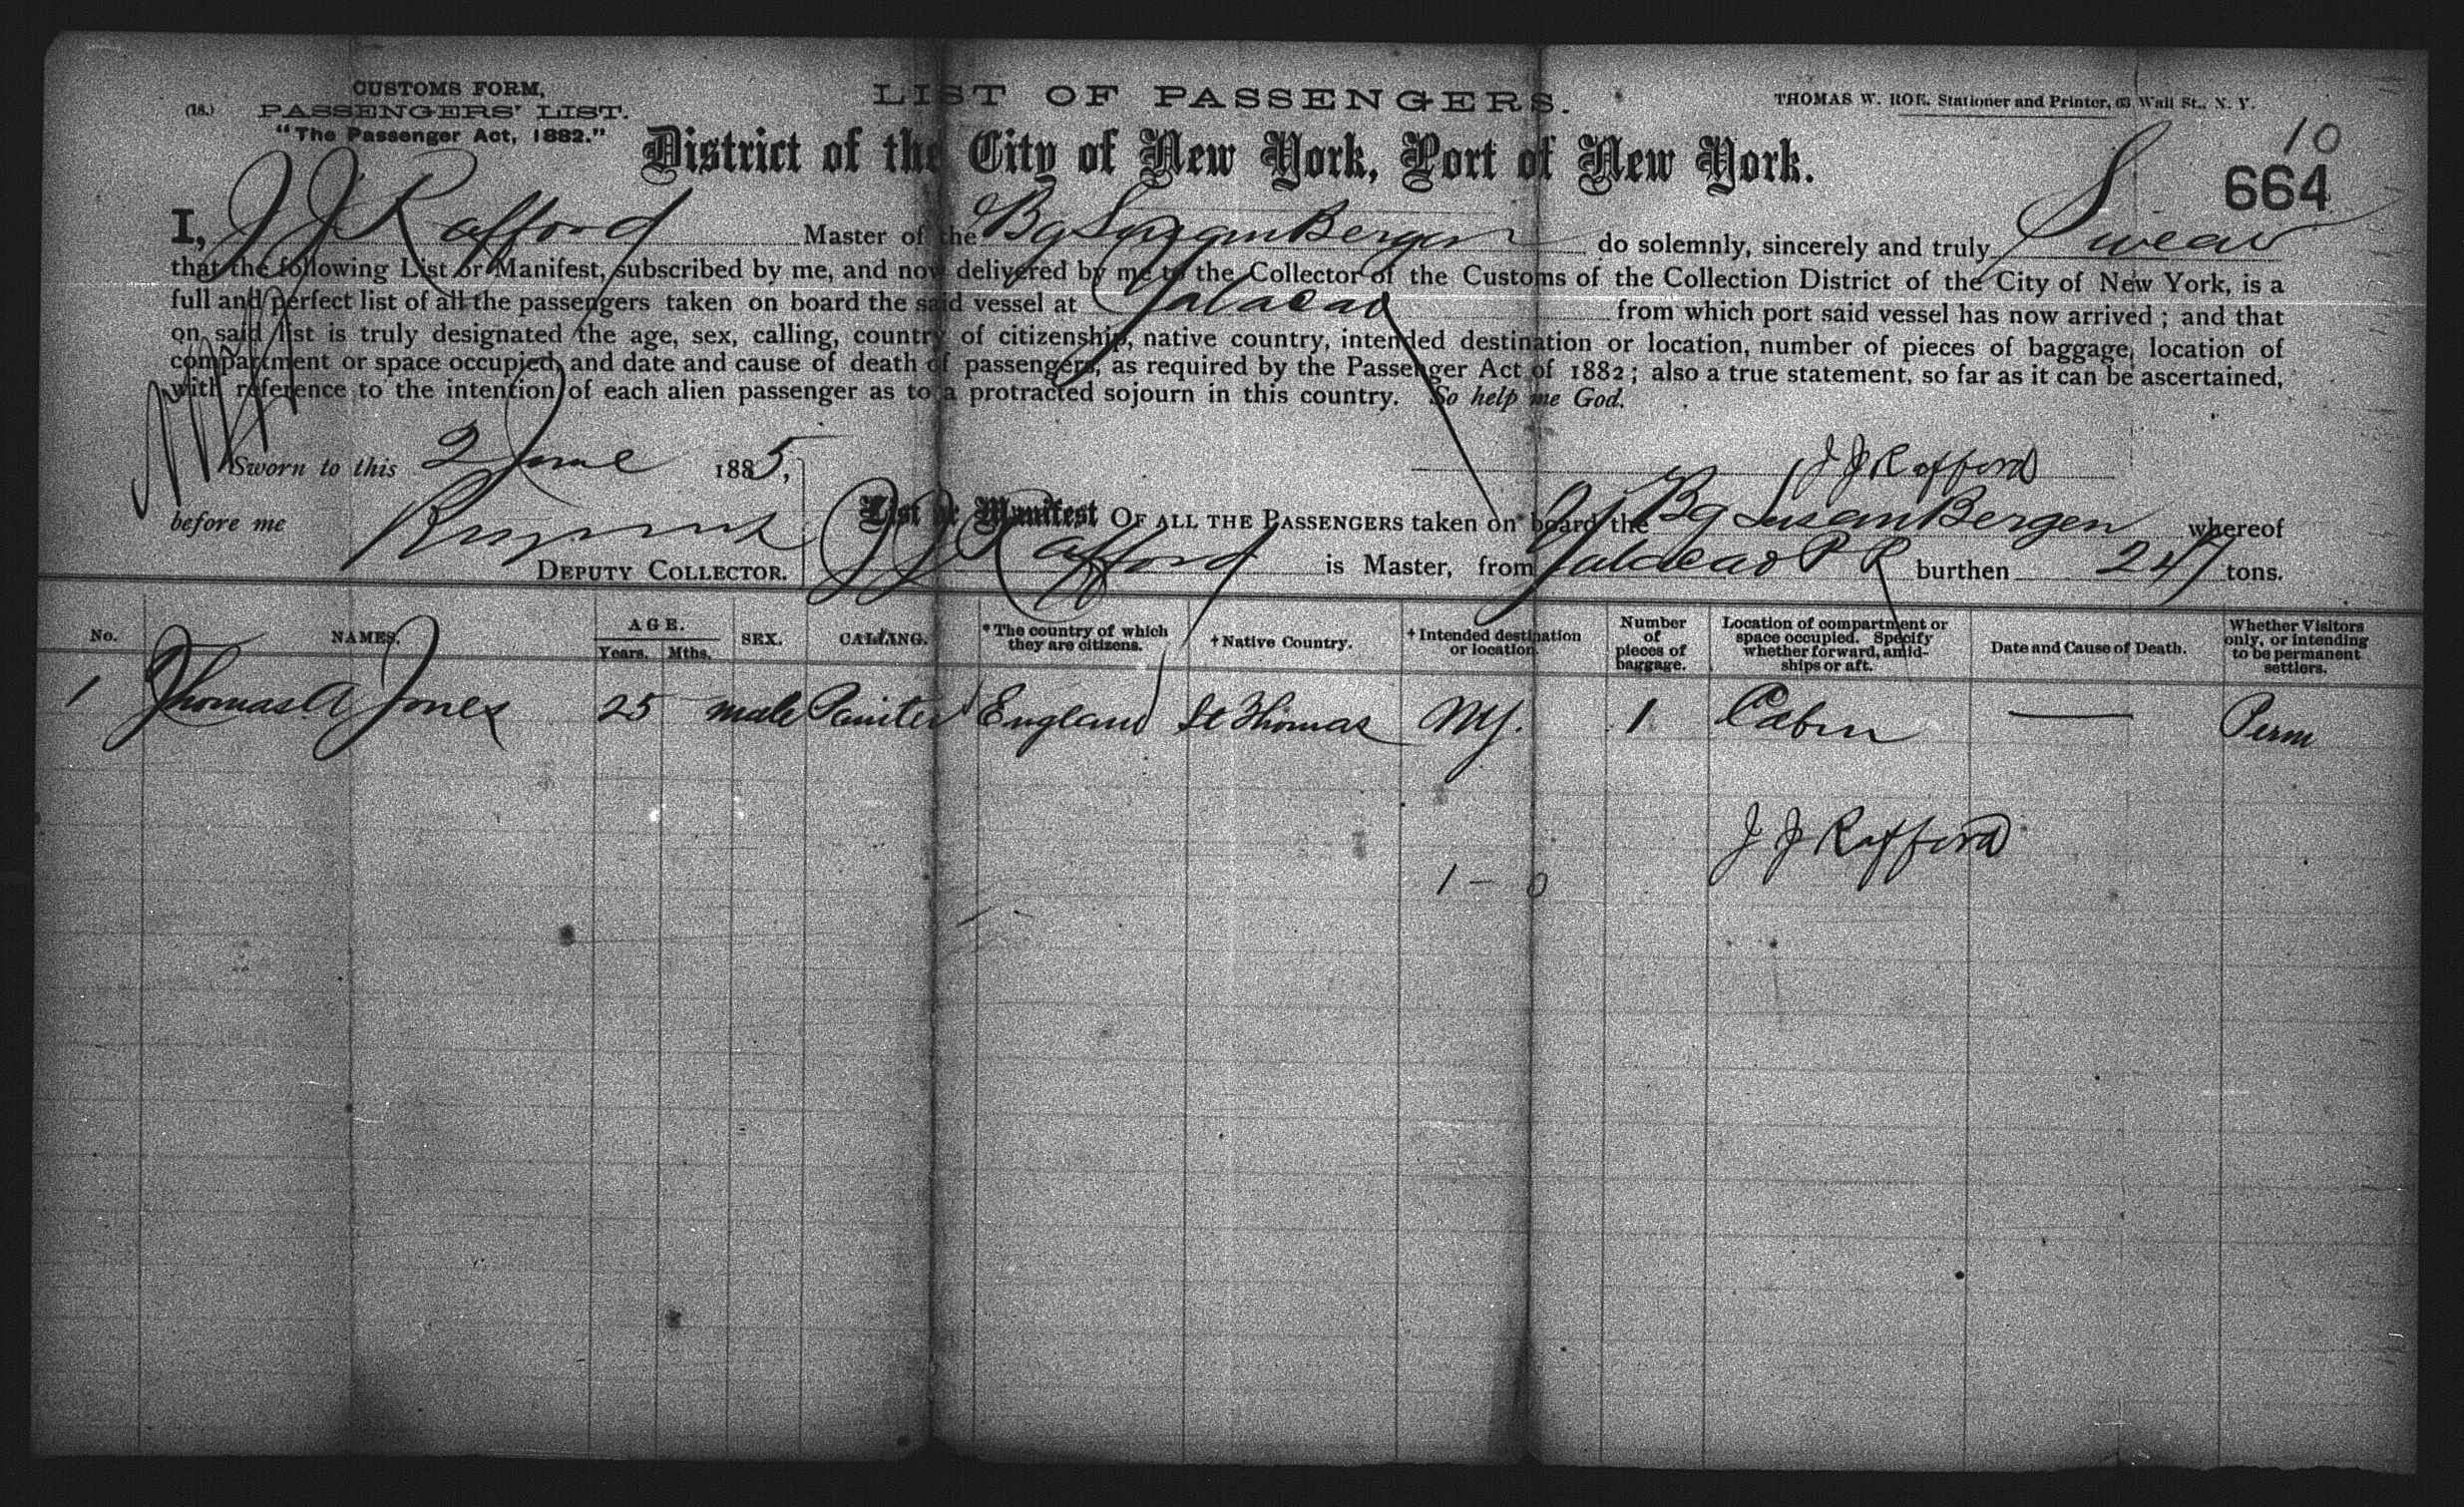 CUSTOMS FORM,
(18.) PASSENGERS' LIST.
"The Passenger Act, 1882."
LIST OF PASSENGERS.
THOMAS W. ROE, Stationer and Printer, 63 Wall St., N. Y.
District of the City of New York, Port of New York.
10
664
I, J J Rafford Master of the Bg Susan Bergen do solemnly, sincerely and truly Swear
that the following List or Manifest, subscribed by me, and now delivered by me to the Collector of the Customs of the Collection District of the City of New York, is a
full and perfect list of all the passengers taken on board the said vessel at from which port said vessel has now arrived; and that
on said list is truly designated the age, sex, calling, country of citizenship, native country, intended destination or location, number of pieces of baggage, location of
compartment or space occupied, and date and cause of death of passengers, as required by the Passenger Act of 1882; also a true statement, so far as it can be ascertained,
with reference to the intention of each alien passenger as to a protracted sojourn in this country. So help me God.
Sworn to this 2 June 1885,
J J Rafford
before me
DEPUTY COLLECTOR.
List or Manifest OF ALL THE PASSENGERS taken on board the Bg Susan Bergen whereof
J J Rafford is Master, from P R burthen 247 tons.
No. NAMES. AGE. Years. Mths. SEX. CALLING. *The country of which they are citizens. †Native Country. †Intended destination or location. Number of pieces of baggage. Location of compartment or space occupied. Specify whether forward, amidships or aft. Date and Cause of Death. Whether Visitors only, or intending to be permanent settlers.
1 Thomas A Jones 25 male Painter England St Thomas NY. 1 Cabin — Perm
J J Rafford
1 - 0